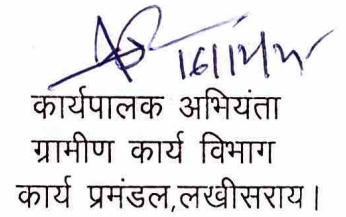 16/12/25
कार्यपालक अभियंता
ग्रामीण कार्य विभाग
कार्य प्रमंडल,लखीसराय।